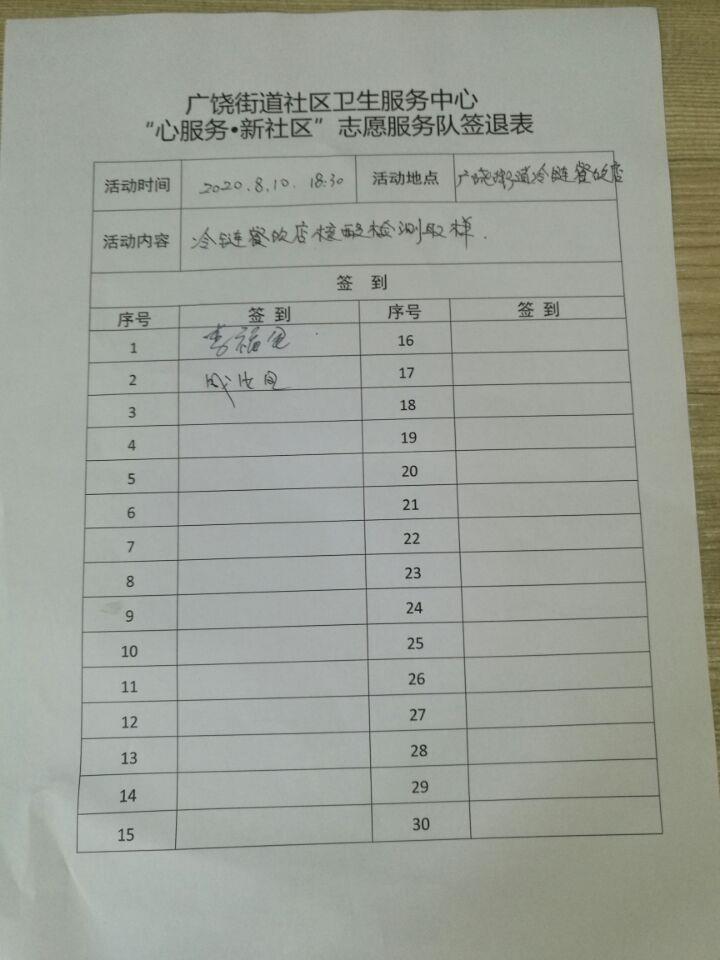 广饶街道社区卫生服务中心
“心服务•新社区”志愿服务队签退表
活动时间 2020.8.10. 18:30 活动地点 广饶街道冷链餐饮店
活动内容 冷链餐饮店核酸检测取样.
签 到
序号 签 到 序号 签 到
1 李福 16
2 17
3 18
4 19
5 20
6 21
7 22
8 23
9 24
10 25
11 26
12 27
13 28
14 29
15 30